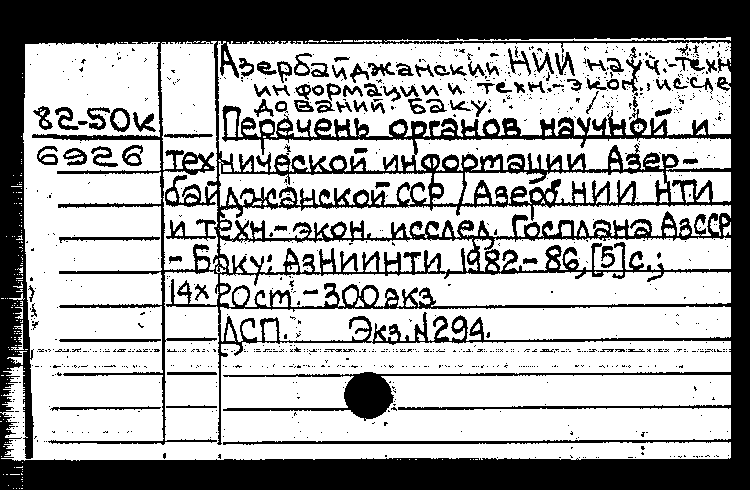 Азербайджанский НИИ науч.-техн
информации и техн.-экон. иссле
дований. Баку.
82-50к
Перечень органов научной и
6926
технической информации Азер-
байджанской ССР / Азерб. НИИ НТИ
и техн.-экон. исслед. Госплана АзССР
- Баку: АзНИИНТИ, 1982.- 86, [5] с.;
14х20 ст. - 300 экз
ДСП. Экз. N294.